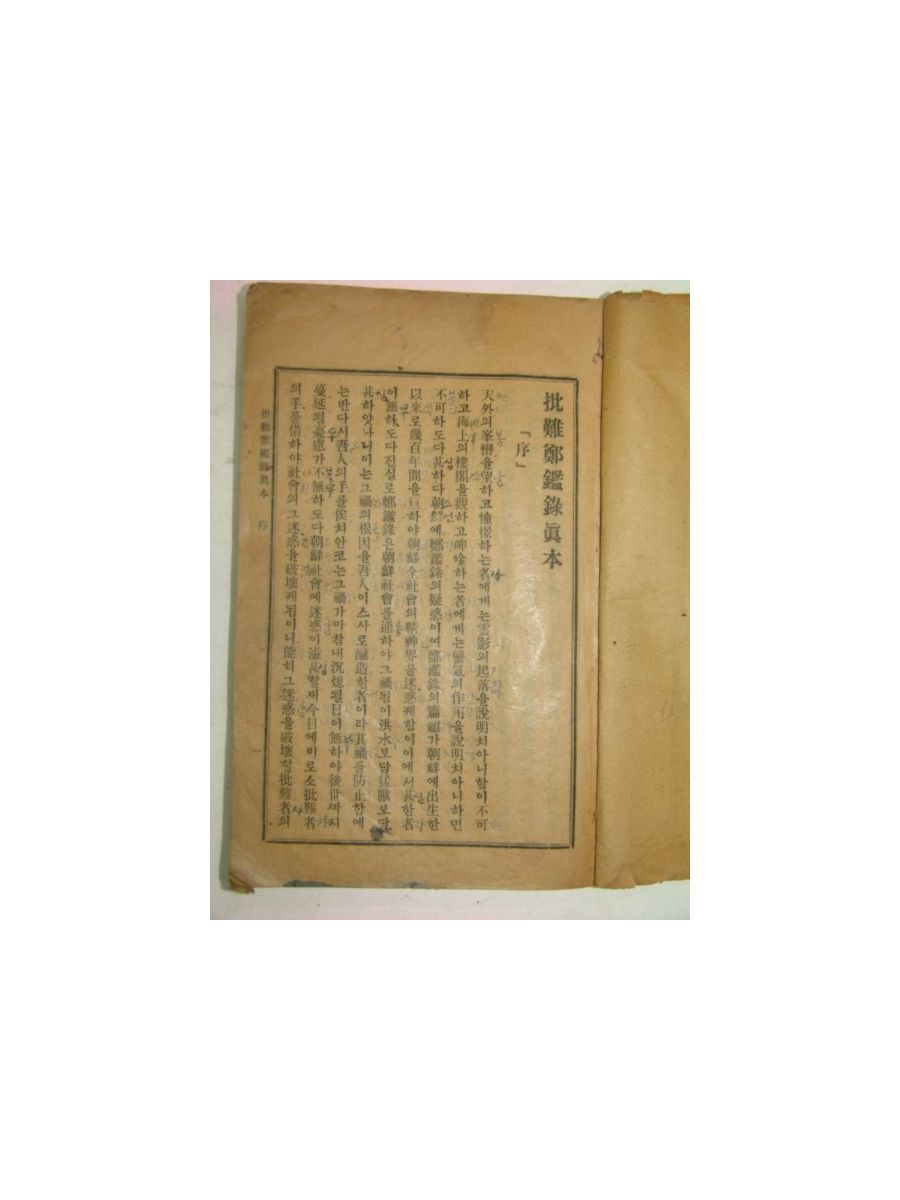 批難鄭鑑錄眞本
「序」
天外의峯巒을望하고憧憬하는者에게는雲影의起落을說明치아니함이不可
하고海上의樓閣을觀하고呻吟하는者에게는蜃氣의作用을說明치아니하면
不可하도다甚하다朝鮮에鄭鑑錄의疑惑이여鄭鑑錄의가朝鮮에出生한
以來로幾百年間을亘하야朝鮮全社會의精神界를迷惑케함이이에서甚한者
이無하도다진실로鄭鑑錄은朝鮮社會를通하야그禍됨이洪水보담猛獸보담
甚하얏나니이는그禍의根因을吾人이스사로釀造한者이라其禍를防止함에
는반다시吾人의手를俟치안코는그禍가마참내沉熄될日이無하야後世까지
蔓延될憂慮가不無하도다朝鮮社會에迷惑이滋甚할새今日에비로소批難者
의手를借하야社會의그迷惑을破壞케됨이니能히그迷惑을破壞할批難者의
批難鄭鑑錄眞本 序